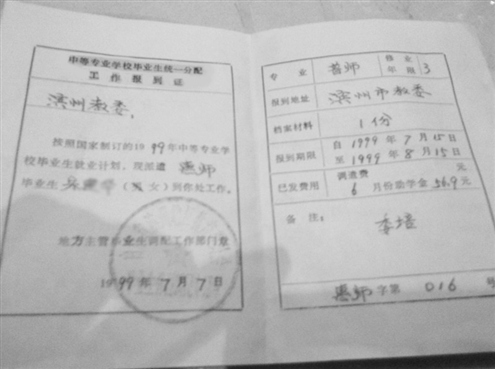 中等专业学校毕业生统一分配
工作报到证
滨州教委:
按照国家制订的1999年中等专业学
校毕业生就业计划,现派遣 惠师
毕业生 (男 女)到你处工作。
地方主管毕业生调配工作部门章
1999年7月7日
专业 普师 修业年限 3
报到地址 滨州市教委
档案材料 1份
报到期限 自1999年7月15日
至1999年8月15日
已发费用 调遣费 元
6月份助学金56.9元
备注: 委培
惠师字第 016 号